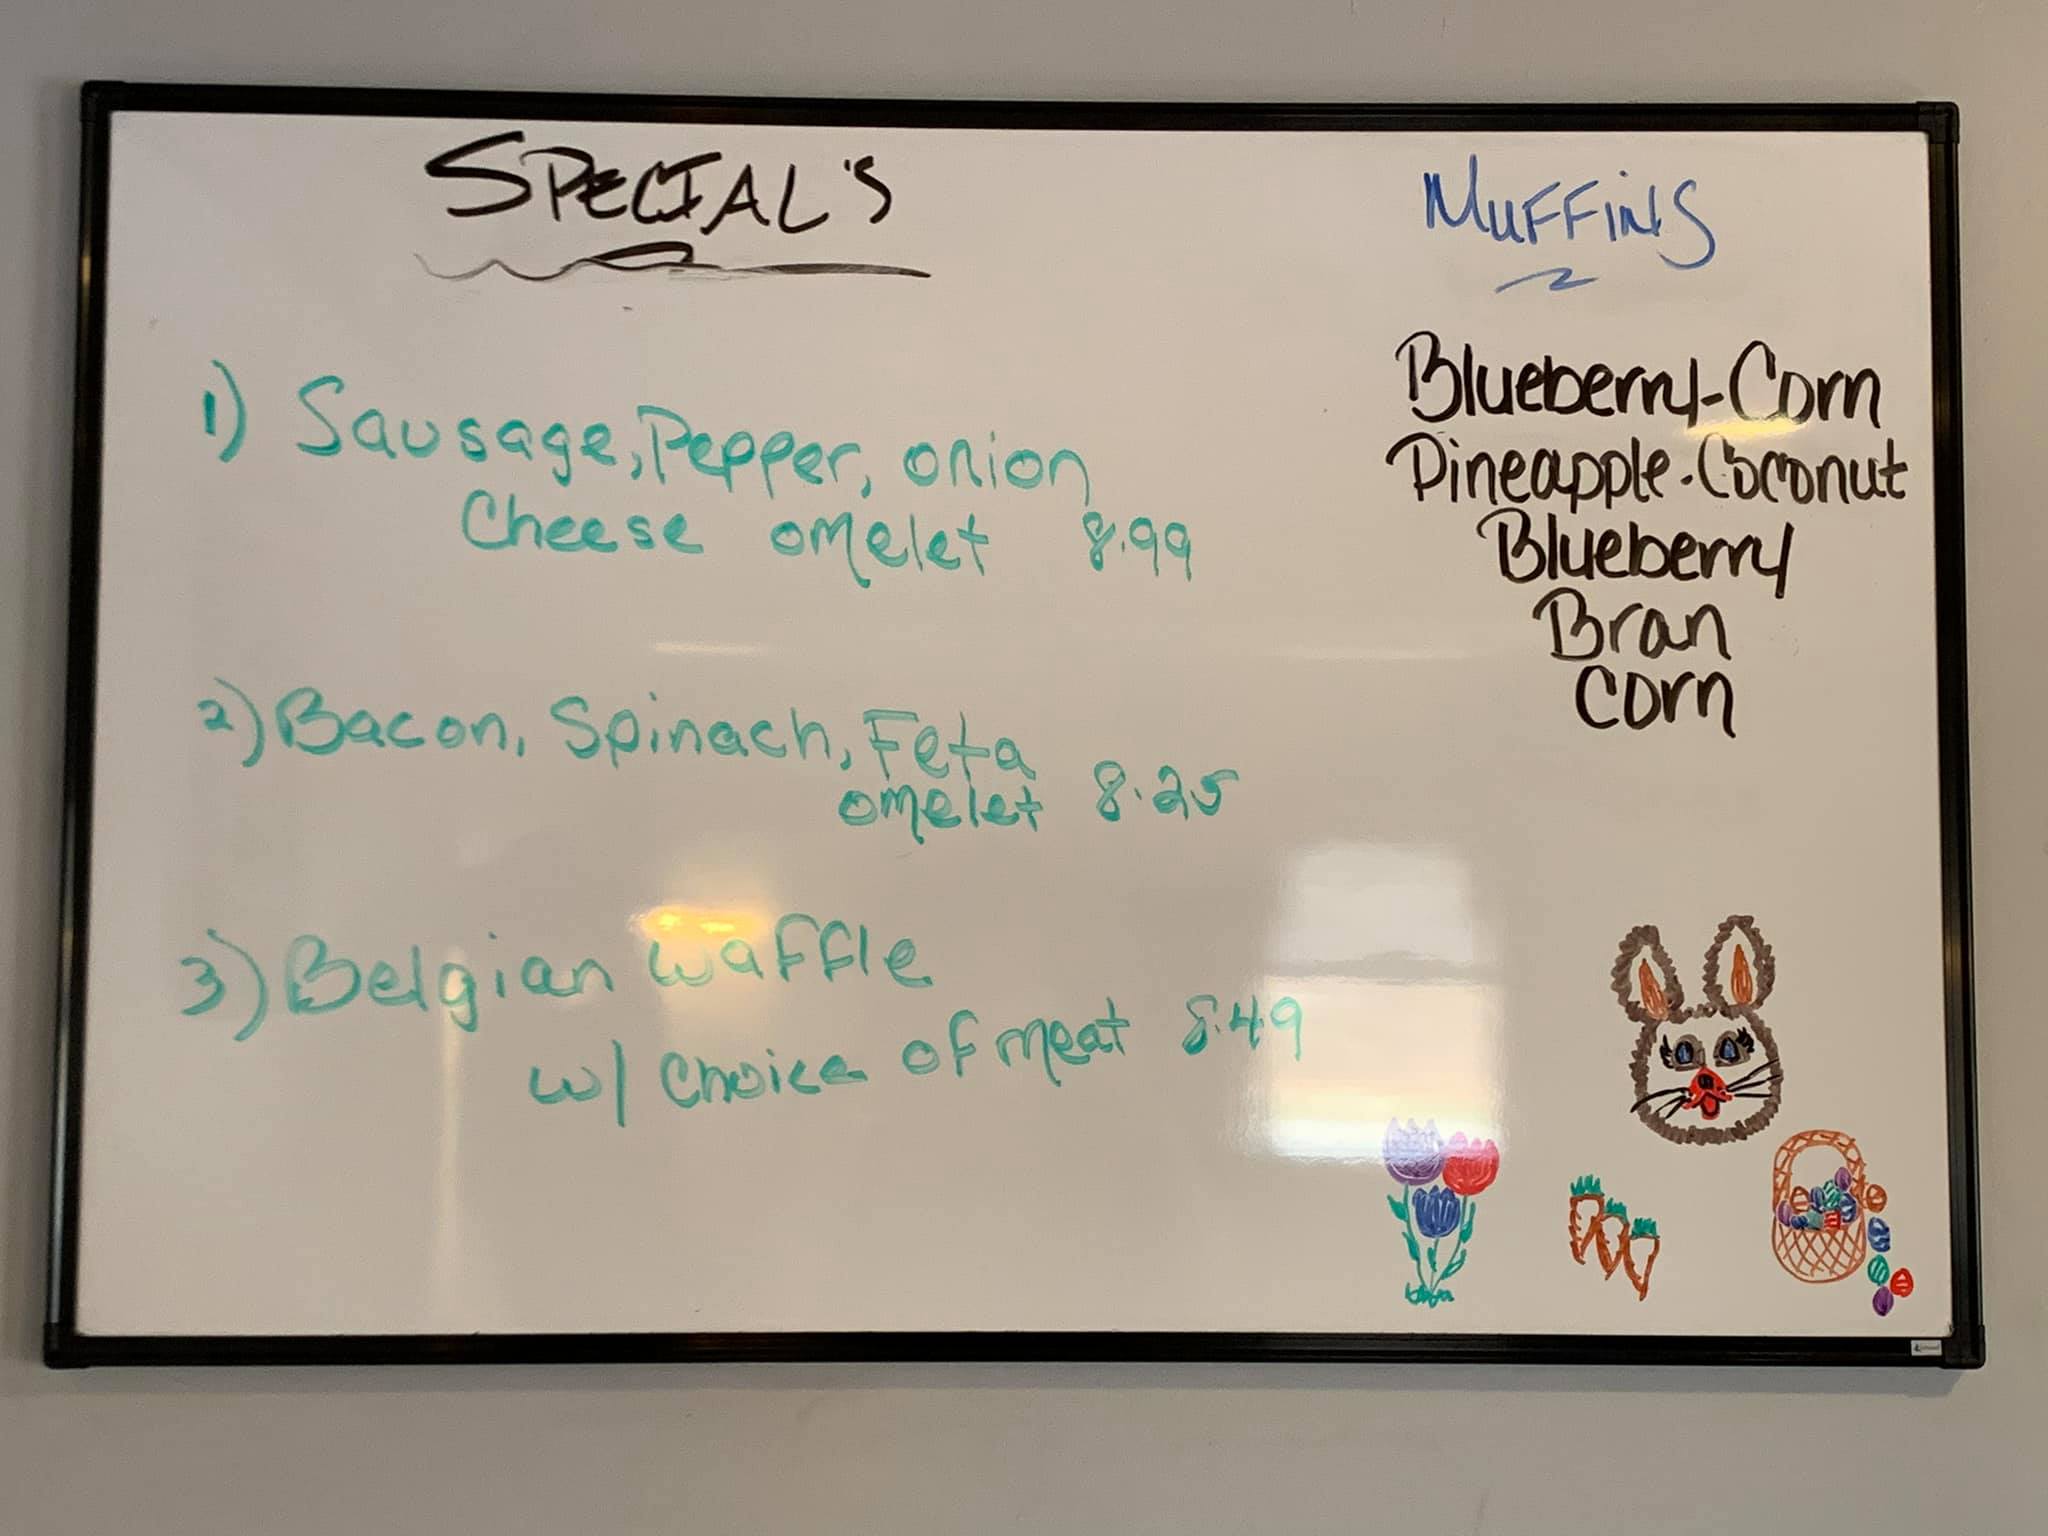 SPECIAL'S
1) Sausage, Pepper, onion
Cheese omelet 8.99
2) Bacon, Spinach, Feta
omelet 8.25
3) Belgian waffle
w/ choice of meat 8.49
MUFFiNS
Blueberry-Corn
Pineapple-Coconut
Blueberry
Bran
Corn